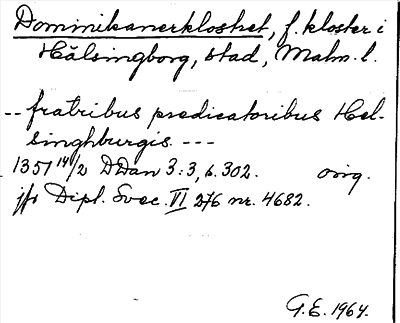 Dominikanerklostret, f. kloster i
Hälsingborg, stad, Malm. l.
-- fratribus predicatoribus Hel-
singhburgis. ---
1357 14/2 DDan 3:3, s. 302. orig.
jfr Dipl. Svec. VI 276 nr. 4682.
G.E. 1964.